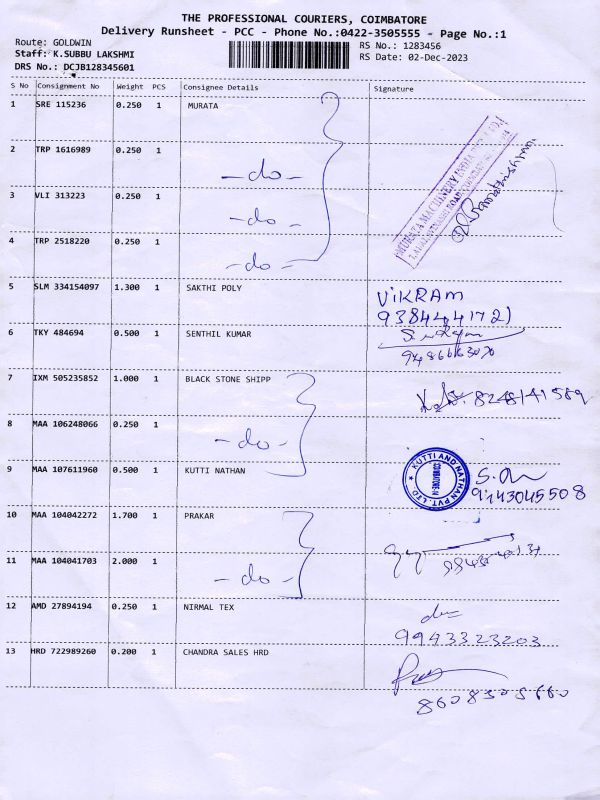 THE PROFESSIONAL COURIERS, COIMBATORE
Delivery Runsheet - PCC - Phone No.:0422-3505555 - Page No.:1
Route: GOLDWIN
Staff: K.SUBBU LAKSHMI
DRS No.: DCJB128345601
RS No.: 1283456
RS Date: 02-Dec-2023
S No Consignment No Weight PCS Consignee Details Signature
1 SRE 115236 0.250 1 MURATA
2 TRP 1616989 0.250 1
-do-
3 VLI 313223 0.250 1
-do-
4 TRP 2518220 0.250 1
-do-
MURATA MACHINERY INDIA
5 SLM 334154097 1.300 1 SAKTHI POLY
VIKRAM
6 TKY 484694 0.500 1 SENTHIL KUMAR
7 IXM 505235852 1.000 1 BLACK STONE SHIPP
8248141589
8 MAA 106248066 0.250 1
-do-
9 MAA 107611960 0.500 1 KUTTI NATHAN
KUTTI AND NATHAN PVT. LTD
9443045508
10 MAA 104042272 1.700 1 PRAKAR
11 MAA 104041703 2.000 1
-do-
12 AMD 27894194 0.250 1 NIRMAL TEX
9943323203
13 HRD 722989260 0.200 1 CHANDRA SALES HRD
8608505660